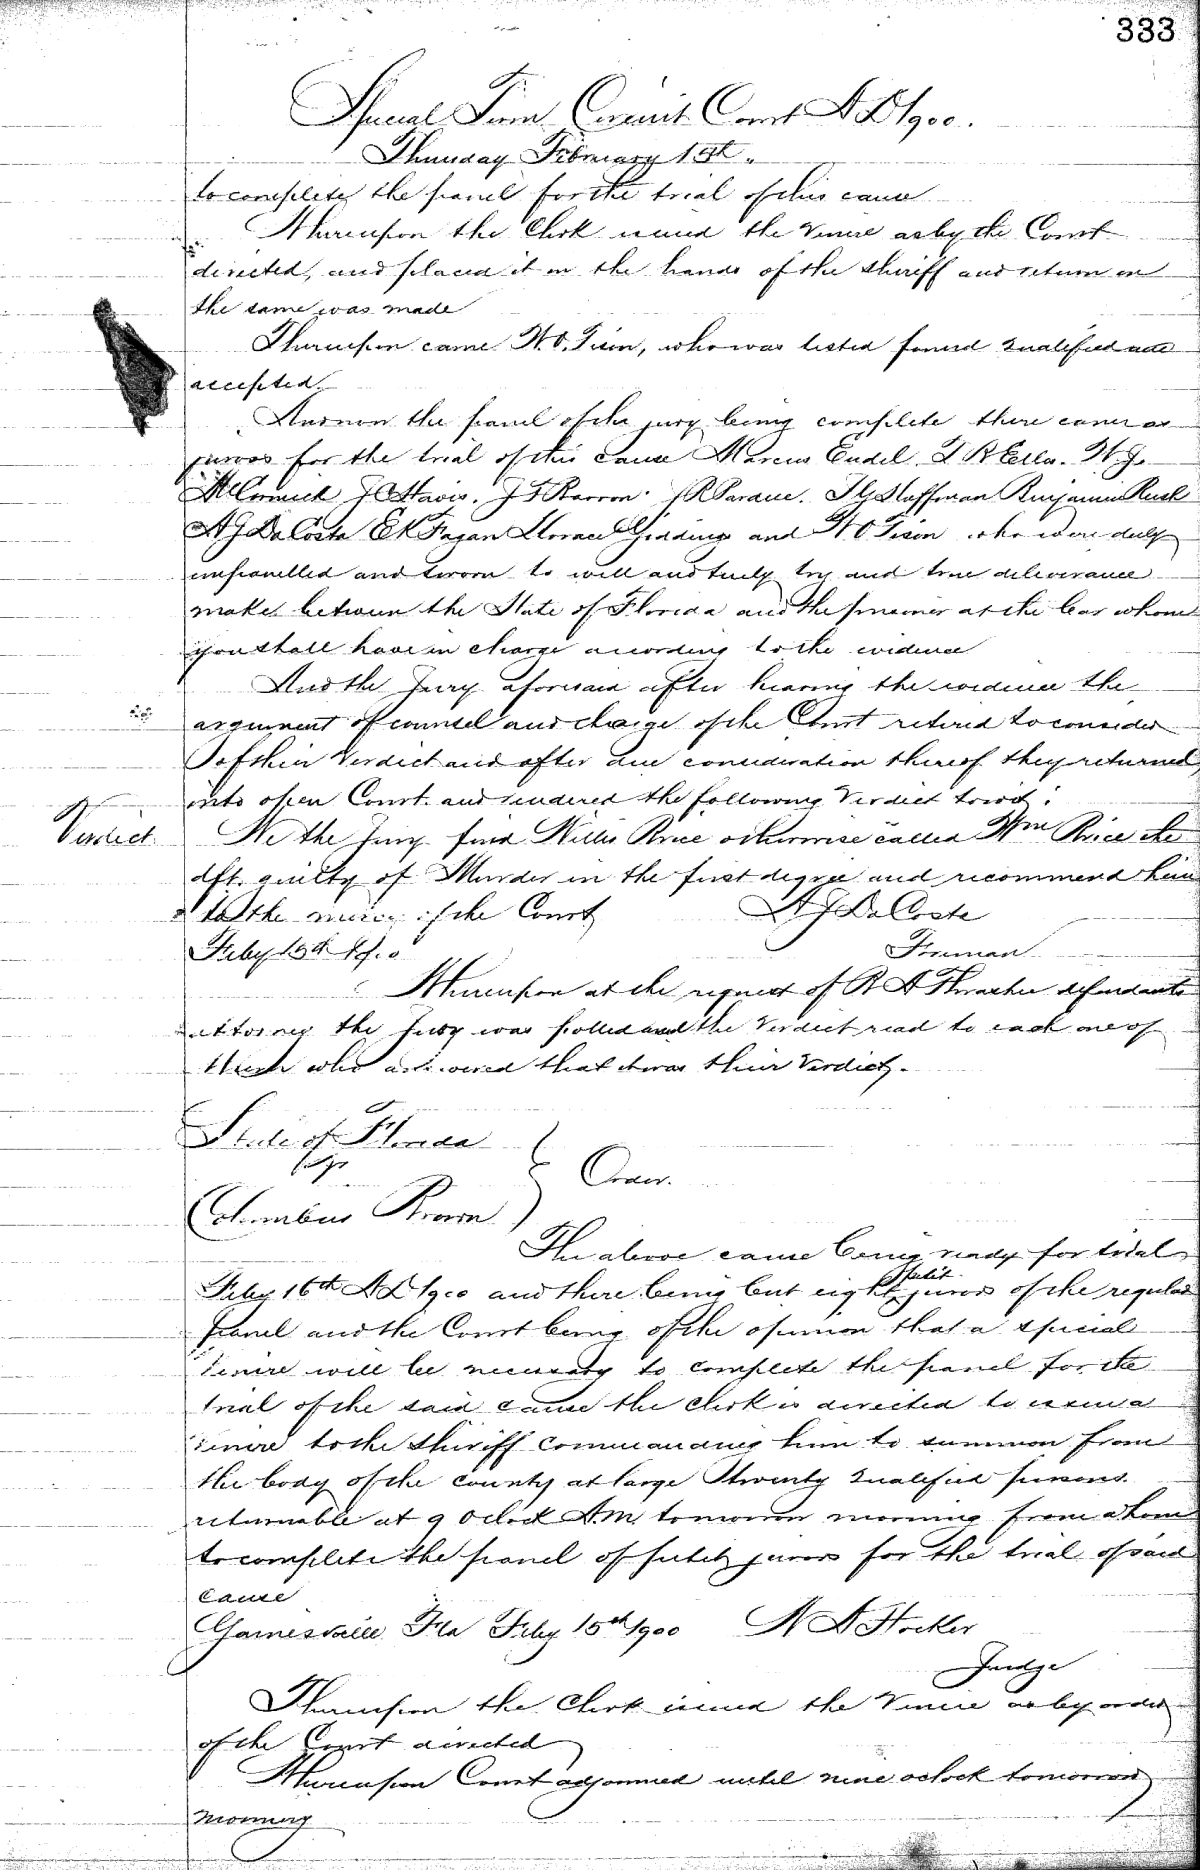 333
Special Term Circuit Court A D 1900.
Thursday February 15th.
to complete the panel for the trial of this cause
Whereupon the Clerk issued the Venire as by the Court
directed, and placed it in the hands of the Sheriff and return on
the same was made
Thereupon came W. O. Tison, who was tested found qualified and
accepted.
And now the panel of the jury being complete there came as
jurors for the trial of this cause Marcus Endel. W. J.
McCormick J C Davis. J F Barron. J R Pardue. Hoffman Benjamin Rush
A J DaCosta E N Fagan Horace Giddings and W O Tison who were duly
impanelled and sworn to well and truly try and true deliverance
make between the State of Florida and the prisoner at the bar whom
you shall have in charge according to the evidence
And the Jury aforesaid after hearing the evidence the
argument of counsel and charge of the Court retired to consider
of their Verdict and after due consideration thereof they returned
into open Court and rendered the following Verdict towit:
Verdict. We the Jury find Willis Price otherwise called Wm Price the
dft. guilty of Murder in the first degree and recommend him
to the mercy of the Court A J DaCosta
Feby 15th 1900 Foreman
Whereupon at the request of B A Thrasher defendants
attorney the Jury was polled and the Verdict read to each one of
them who answered that it was their Verdict.
State of Florida
Order.
Columbus Brown
The above cause being ready for trial
Feby 16th A D 1900 and there being but eight petit jurors of the regular
panel and the Court being of the opinion that a special
Venire will be necessary to complete the panel for the
trial of the said cause the clerk is directed to issue a
venire to the Sheriff commanding him to summon from
the body of the county at large twenty qualified persons
returnable at 9 Oclock A.M. tomorrow morning from whom
to complete the panel of petit jurors for the trial of said
cause
Gainesville Fla Feby 15th 1900 W A Hocker
Judge
Thereupon the Clerk issued the Venire as by order
of the Court directed
Whereupon Court adjourned until nine oclock tomorrow
morning